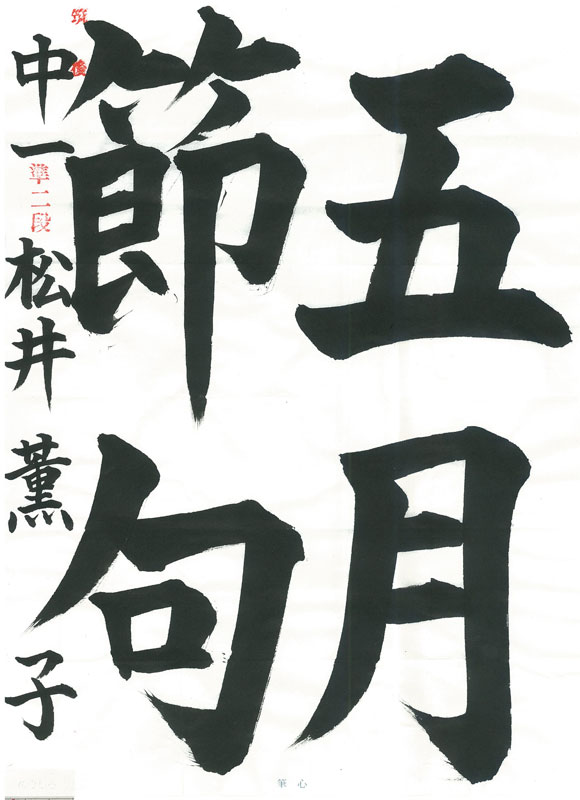 五月
節句
筑後
中一 準二段 松井薫子
筆心